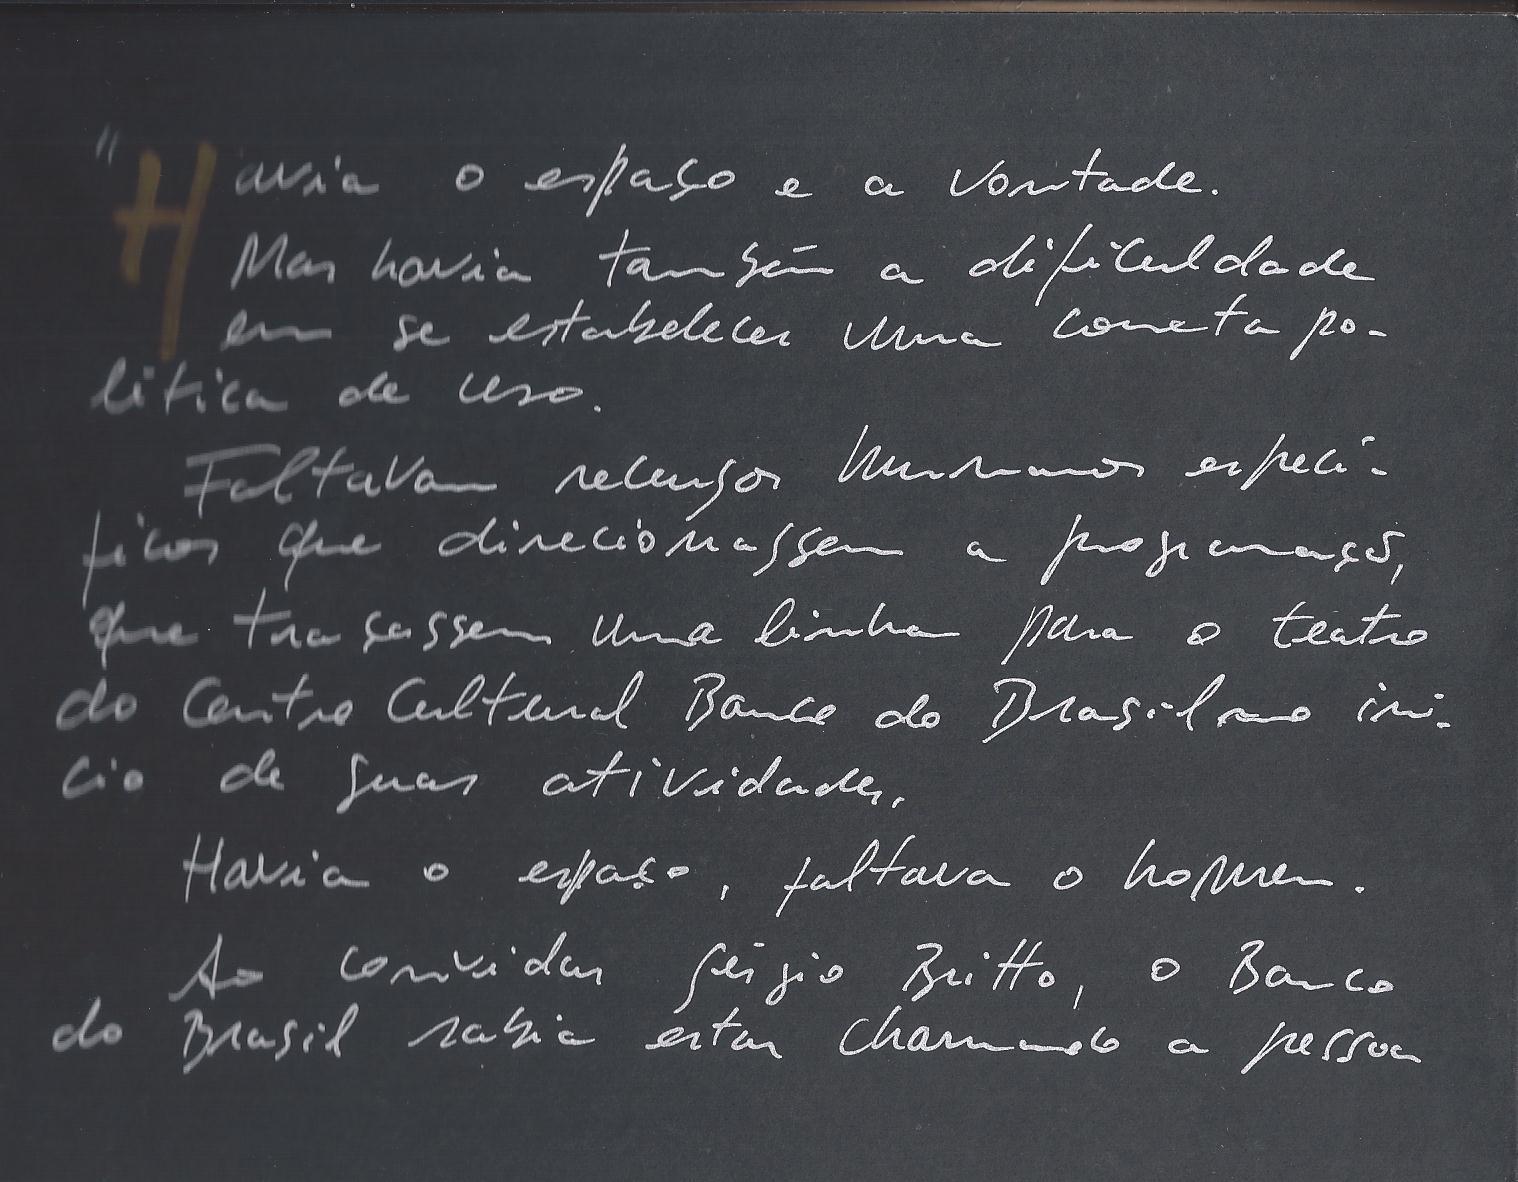 "Havia o espaço e a vontade.
Mas havia também a dificuldade
em se estabelecer uma correta po-
lítica de uso.
Faltavam recursos humanos especí-
ficos que direcionassem a programação,
que traçassem uma linha para o teatro
do Centro Cultural Banco do Brasil no iní-
cio de suas atividades.
Havia o espaço, faltava o homem.
Ao convidar Sérgio Britto, o Banco
do Brasil sabia estar chamando a pessoa